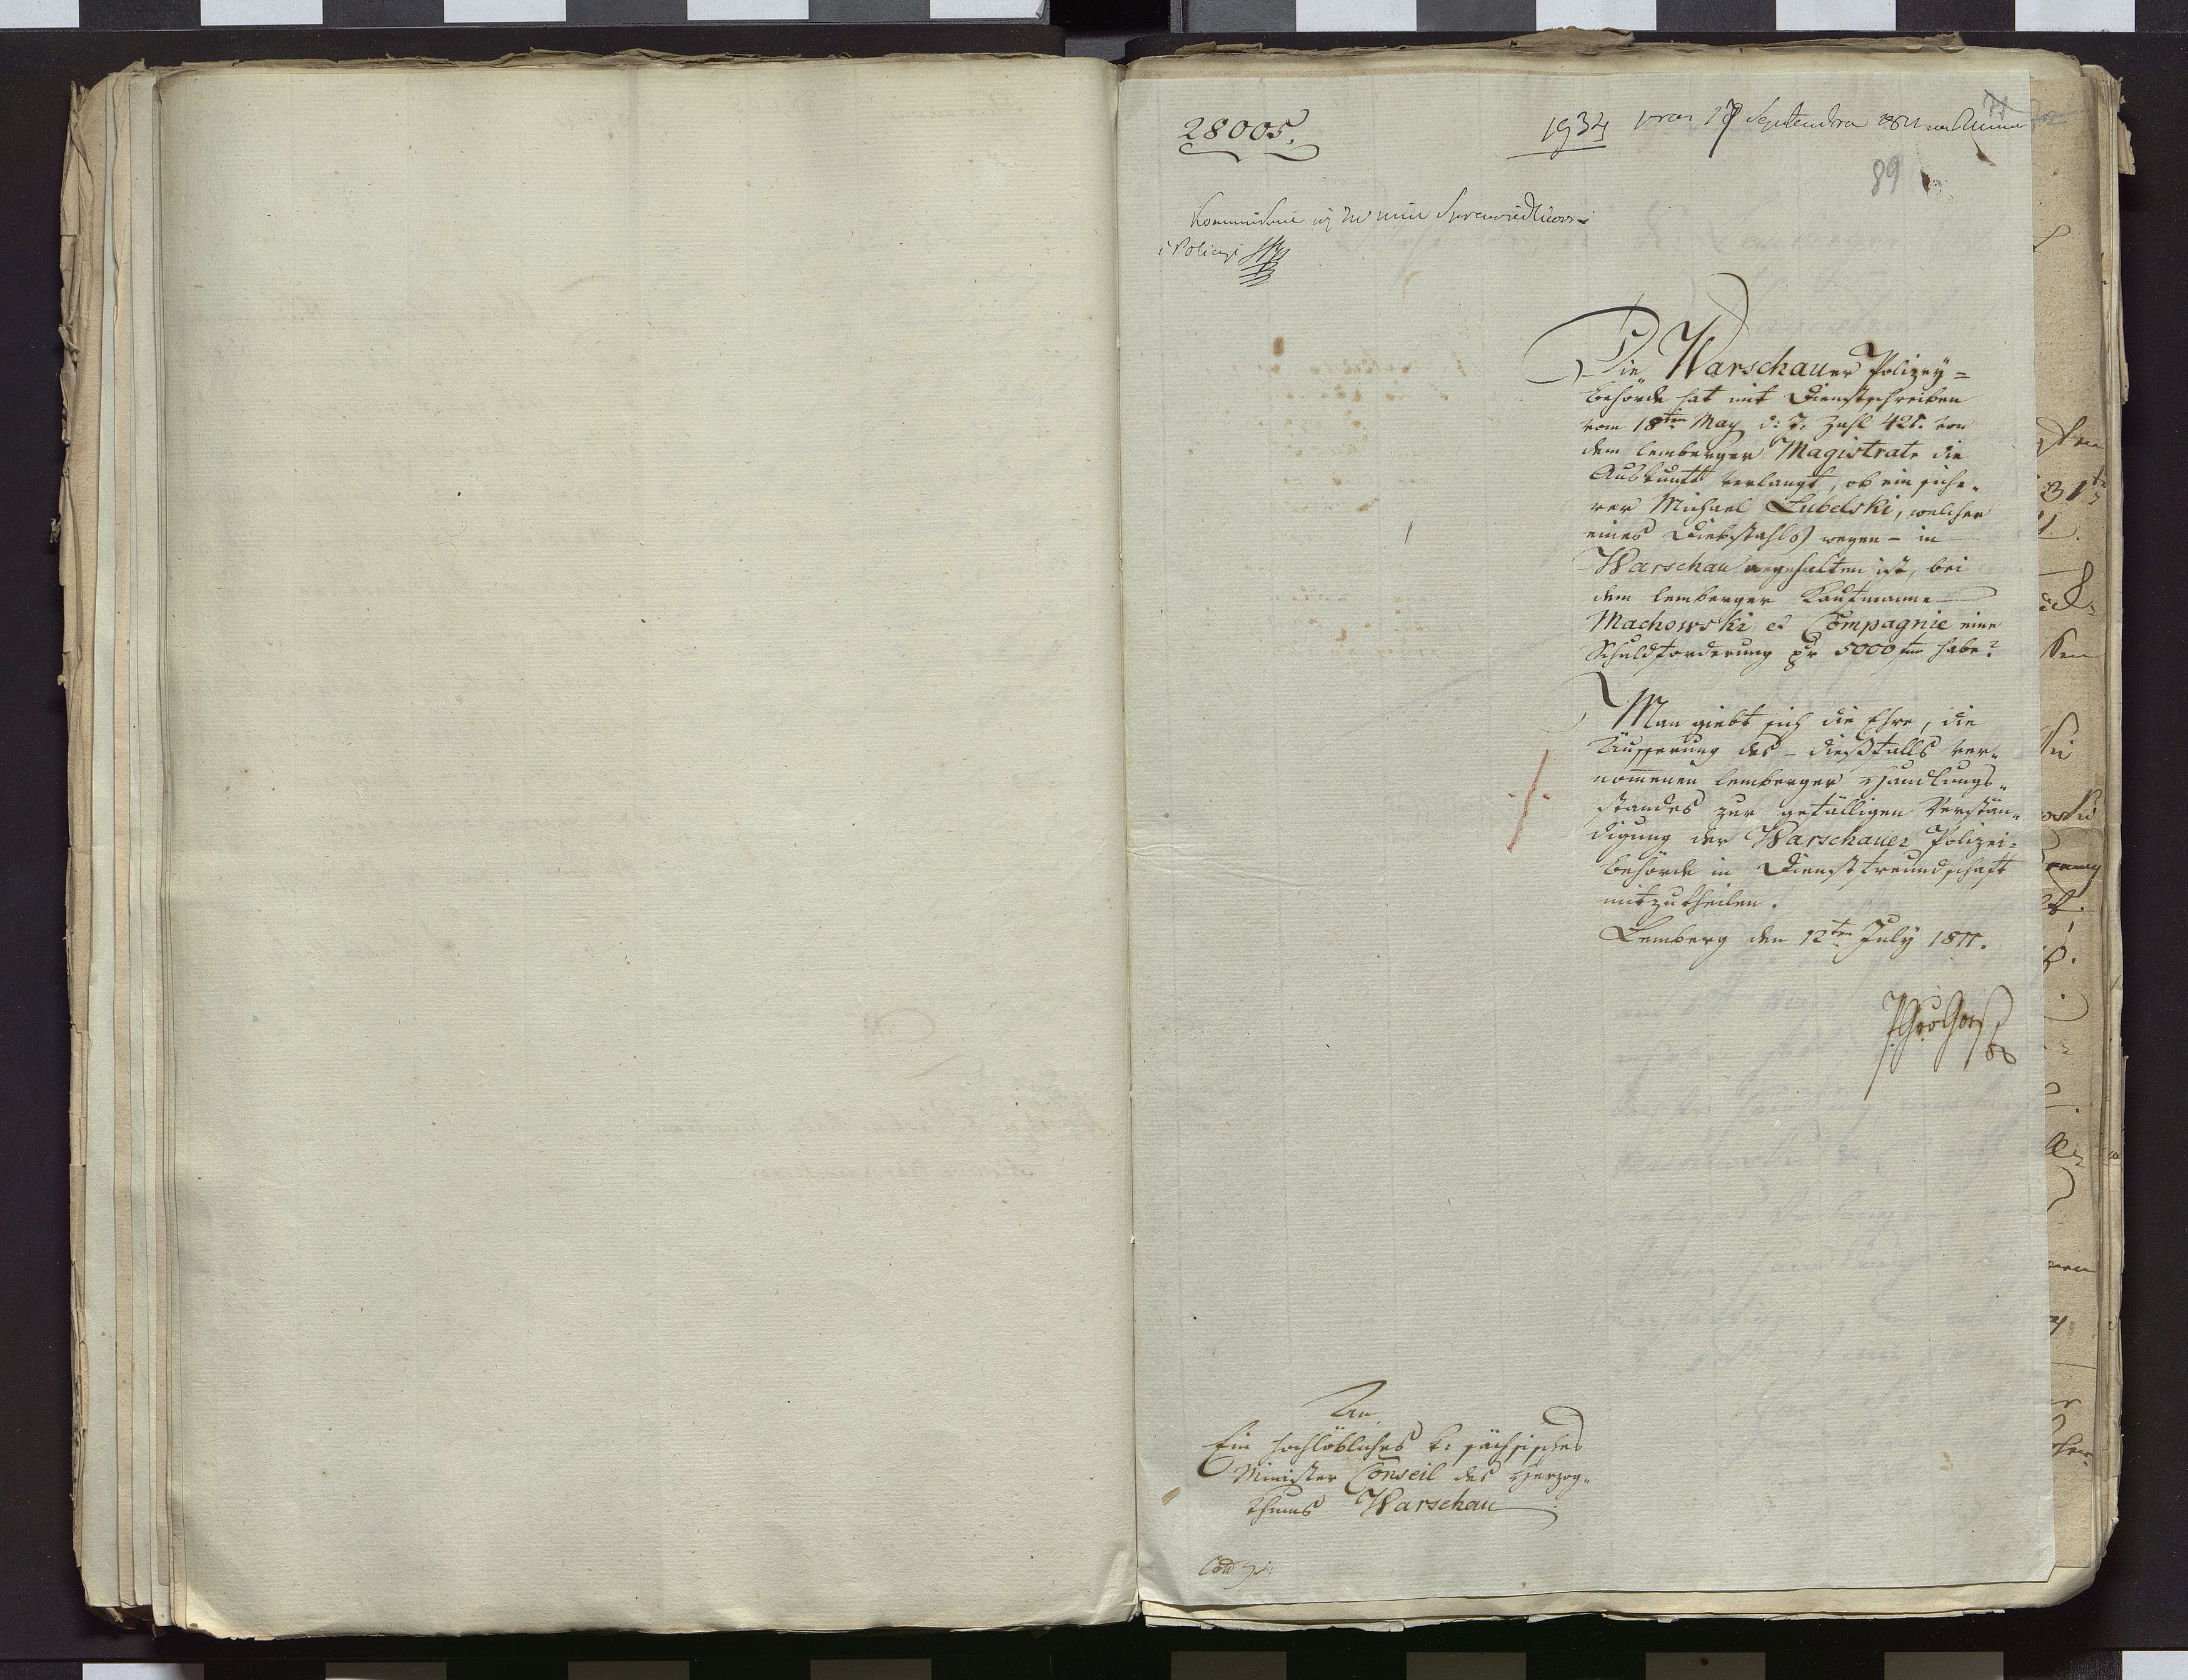 28005.
1934 17 Septembra 1811
89
Kommunikuie się
i Policyi
Die Warschauer Polizey=
behörde hat mit Dienstschreiben
vom 18ten May d: J. Zahl 425. von
dem lemberger Magistrate die
Auskunft verlangt, ob ein siche-
rer Michael Lubelski, welcher
eines Diebstahls wegen - in
Warschau angehalten ist, bei
dem lemberger Kaufmanne
Machowski et Compagnie eine
Schuldforderung pr 5000 habe?
Man giebt sich die Ehre, die
Äusserung des - dießfalls ver-
nom̅enen lemberger Handlungs-
standes zur gefälligen Verstän-
digung der Warschauer Polizei-
behörde in Dienstfreundschaft
mitzutheilen.
Lemberg den 12ten July 1811.
An
Ein hochlöbliches k: sächsisches
Minister Conseil des Herzog-
thums Warschau